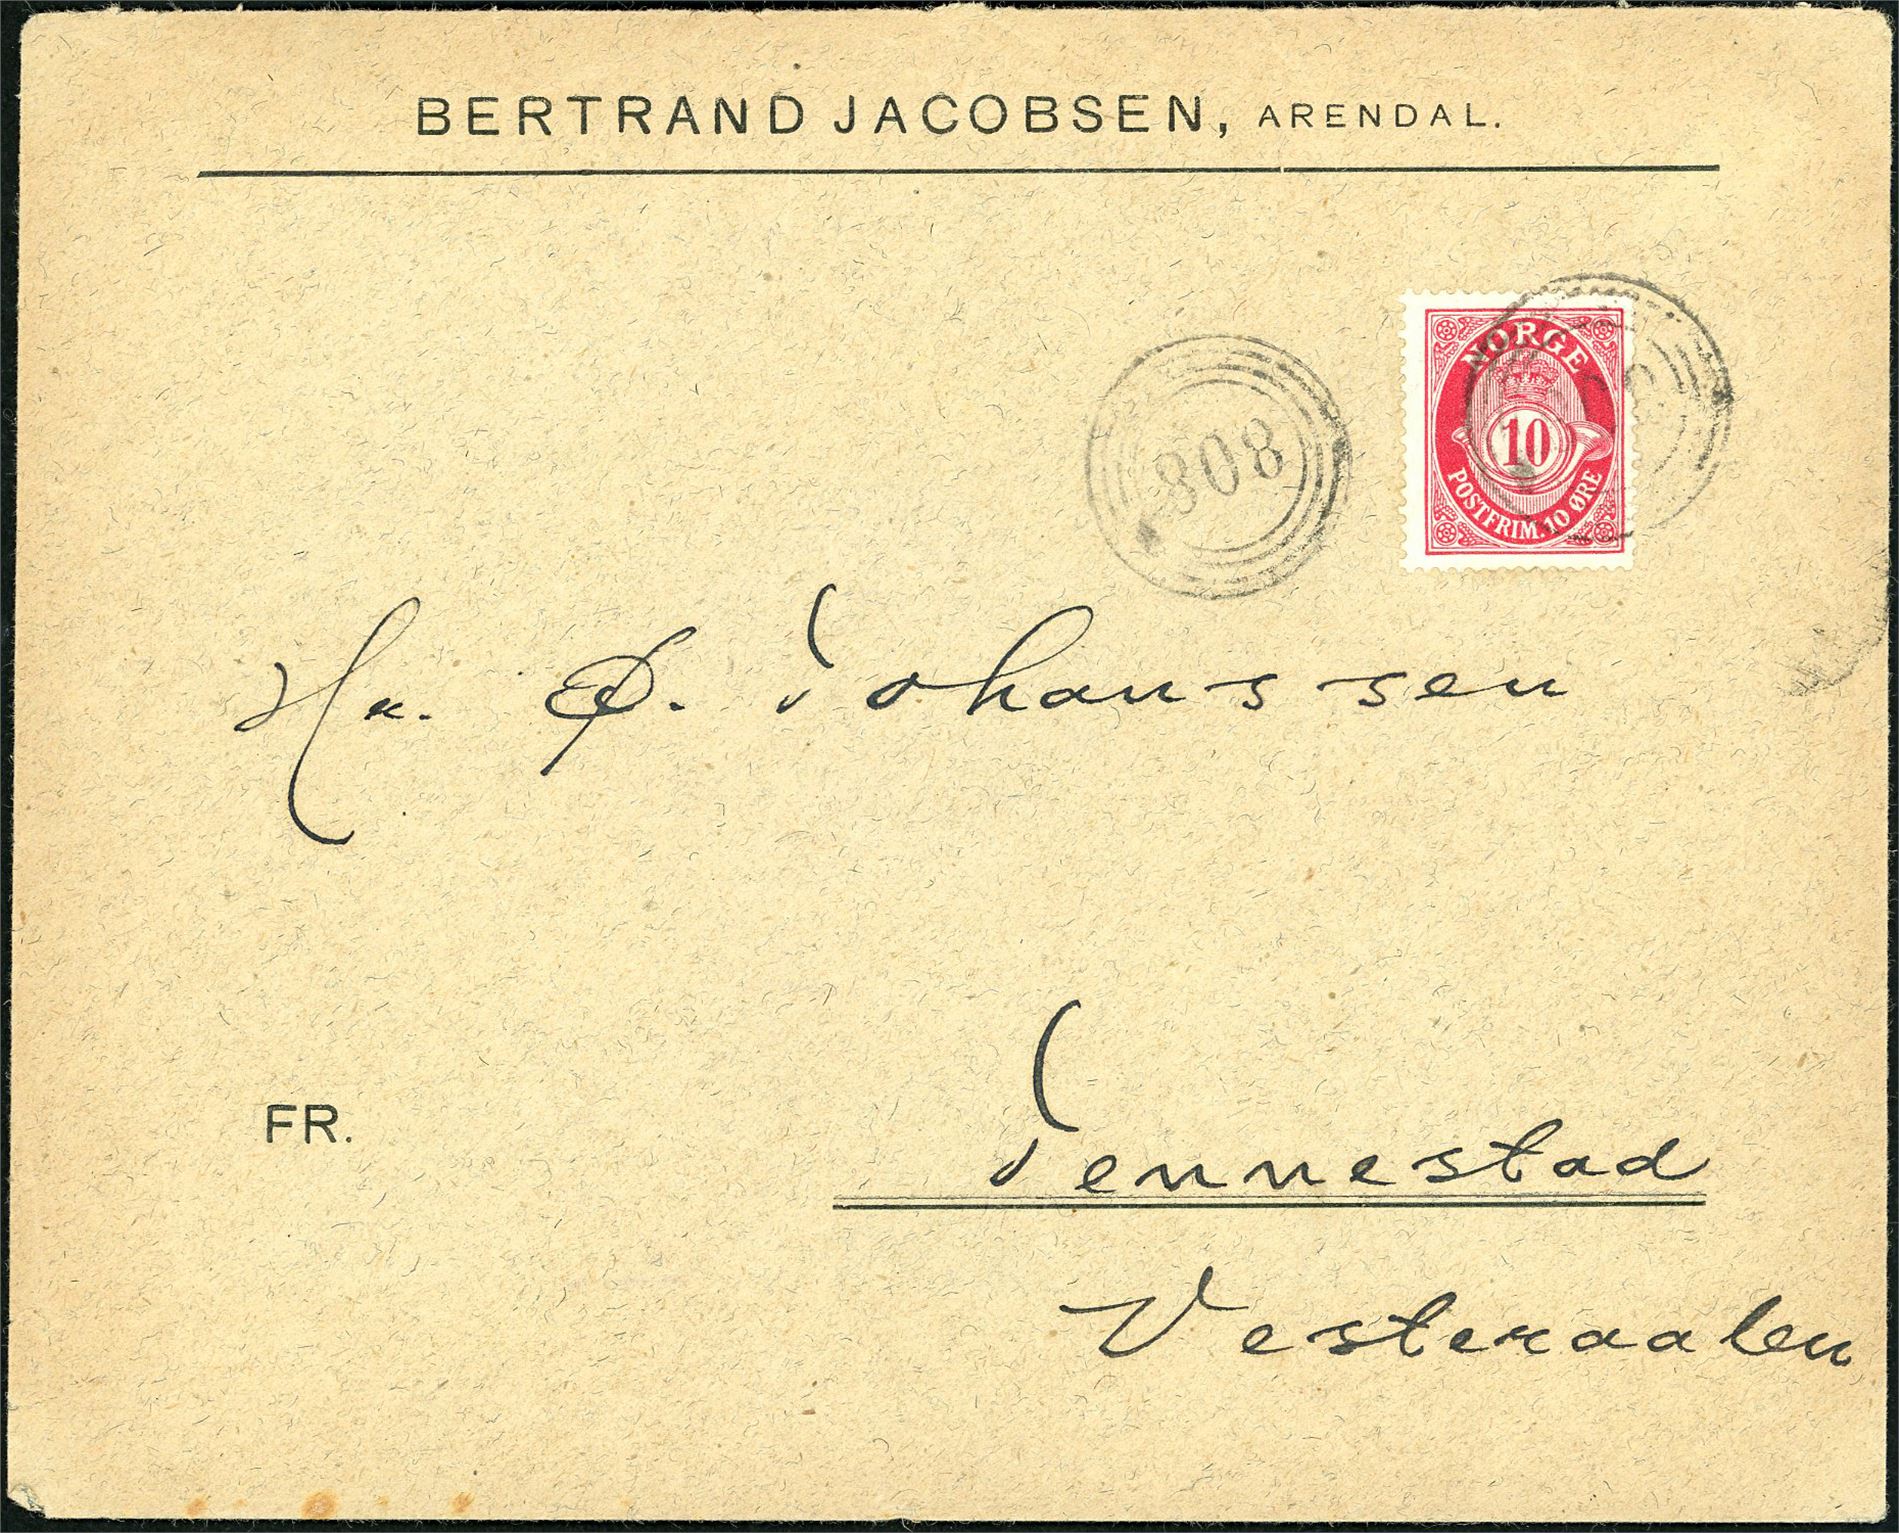 BERTRAND JACOBSEN, ARENDAL.
NORGE
10
POSTFRIM. 10 ØRE
808
Hr. Ø. Johanssen
FR.
Tennestad
Vesteraalen